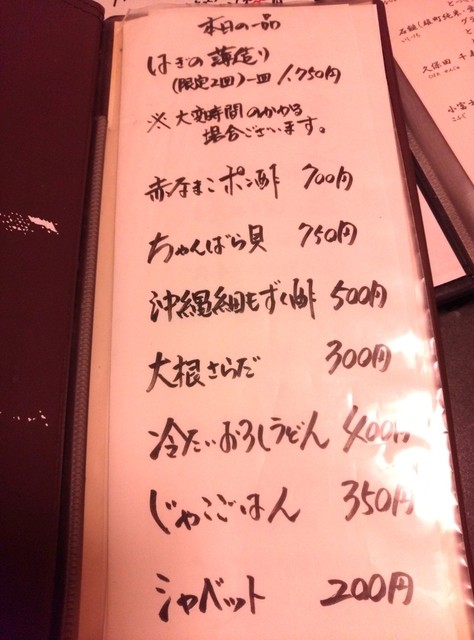 本日の一品
はぎの薄造り
(限定2皿)一皿 1,750円
※大変時間のかかる
場合ございます。
赤なまこポン酢 700円
ちゃんばら貝 750円
沖縄細もずく酢 500円
大根さらだ 300円
冷たいおろしうどん 400円
じゃこごはん 350円
シャベット 200円
久保田 千